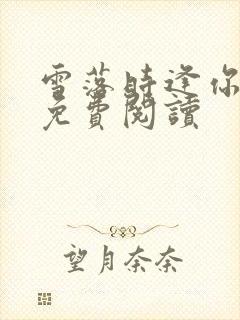 雪落時逢你
免費閱讀
望月奈奈